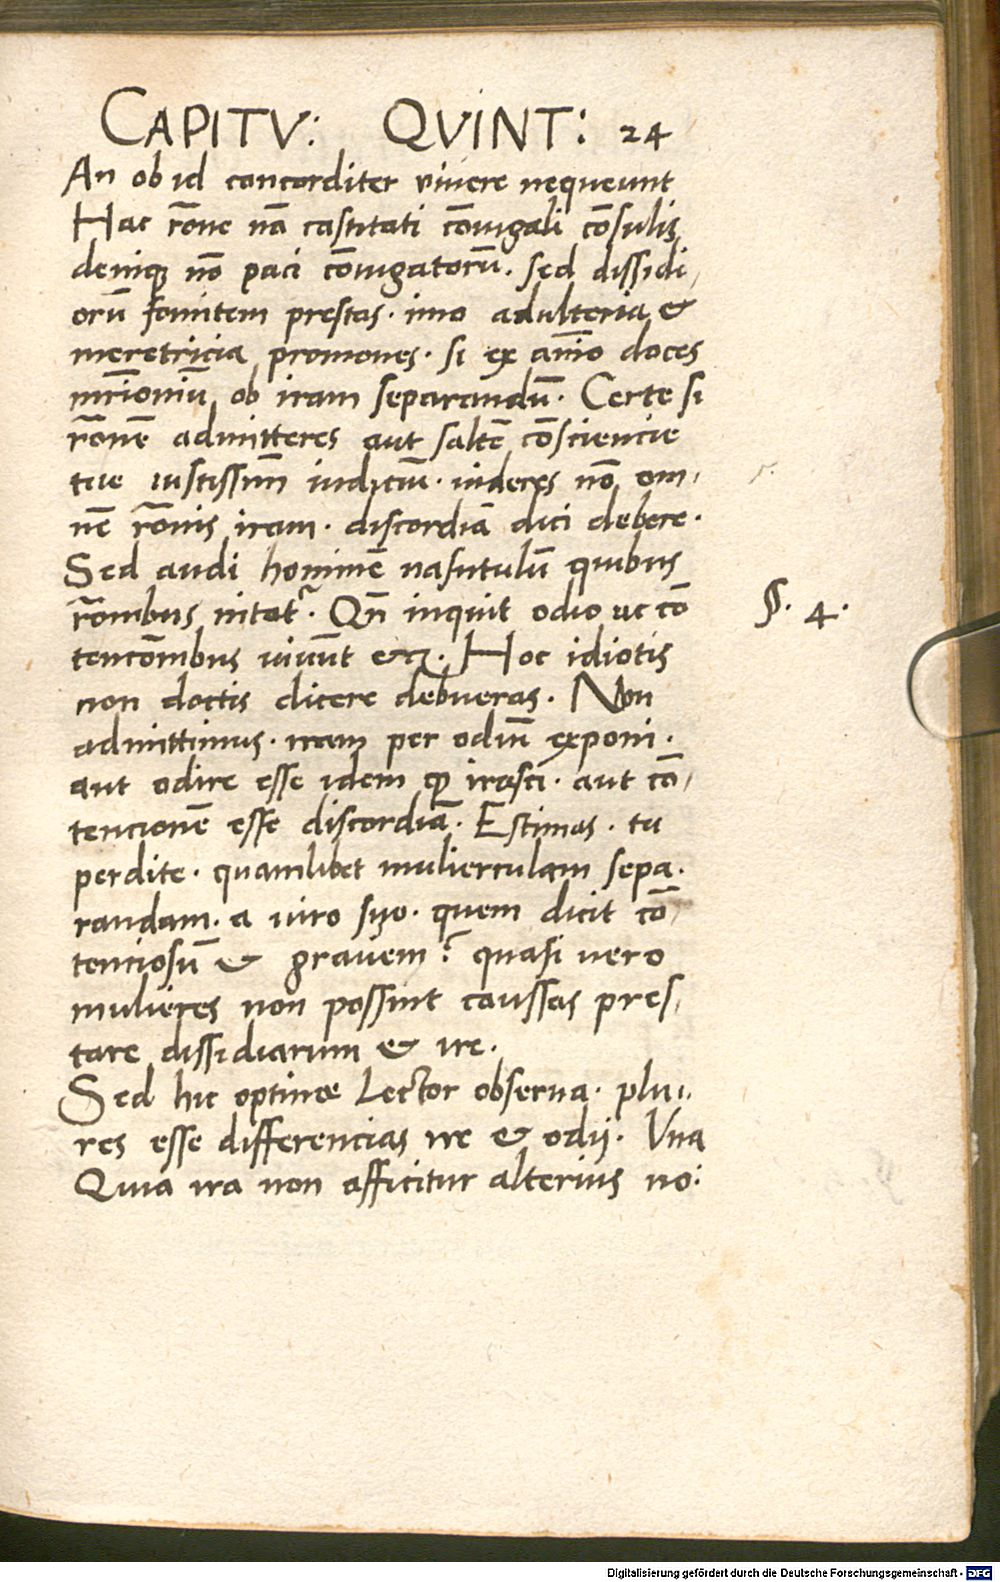 CAPITV: QVINT: 24
An ob id concorditer vivere nequeunt
Hac rōne nō castitati cōiugali cōsulis
deniqꝫ nō paci cōiugatorū. sed dissidi,
orū fomitem prestas. imo adulteria &
meretricia promoves. si ex aīo doces
mr̄imoniū ob iram separandū. Certe si
rōnē admitteres aut saltē cōsciencie
tue iustissimū iudiciū. uideres nō om,
nē rōnis iram. discordiā dici debere.
Sed audi hominē nasutulū quibus
rōnibus nitat᷑. Qn̄ inquit odio uc cō
tencōnibus uiuūt &cꝫ. Hoc idiotis
non doctis dicere debueras. Non
admittimus. iram per odiū exponi.
aut odire esse idem qᷓ irasci. aut cō,
tencionē esse discordiā. Estimas. tu
perdite. quamlibet mulierculam sepa.
randam. a uiro suo. quem dicit cō,
tenciosū & gravem? quasi vero
mulieres non possint caussas pres,
tare dissidiarum & ire.
Sed hic optime Lector observa. plui,
res esse differencias ire & odij. Vna
Quia ira non afficitur alterius no:
§. 4.
Digitalisierung gefördert durch die Deutsche Forschungsgemeinschaft - DFG